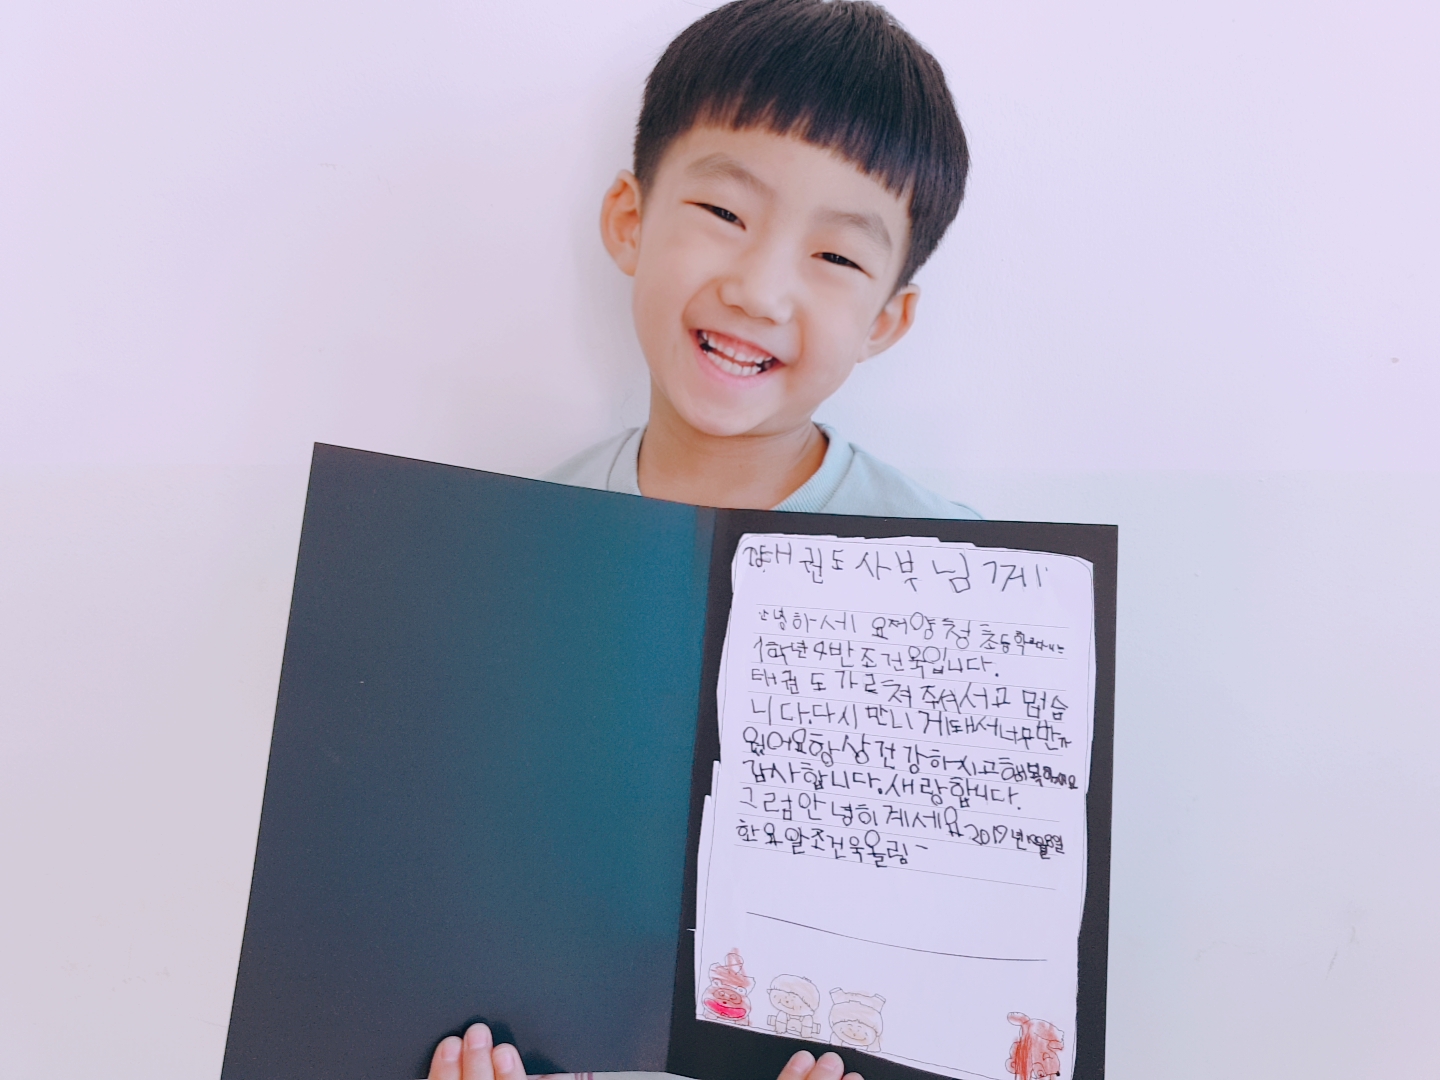 태권도 사부님께
안녕하세요 저 양청 초등학교다니는
1학년 4반 조건욱입니다.
태권도 가르쳐 주셔서 고맙습
니다.다시 만나게돼서너무반가
웠어요항상건강하시고행복하세요
감사합니다.새랑합니다.
그럼안녕히계세요 2019년10월8일
화요일조건욱올림